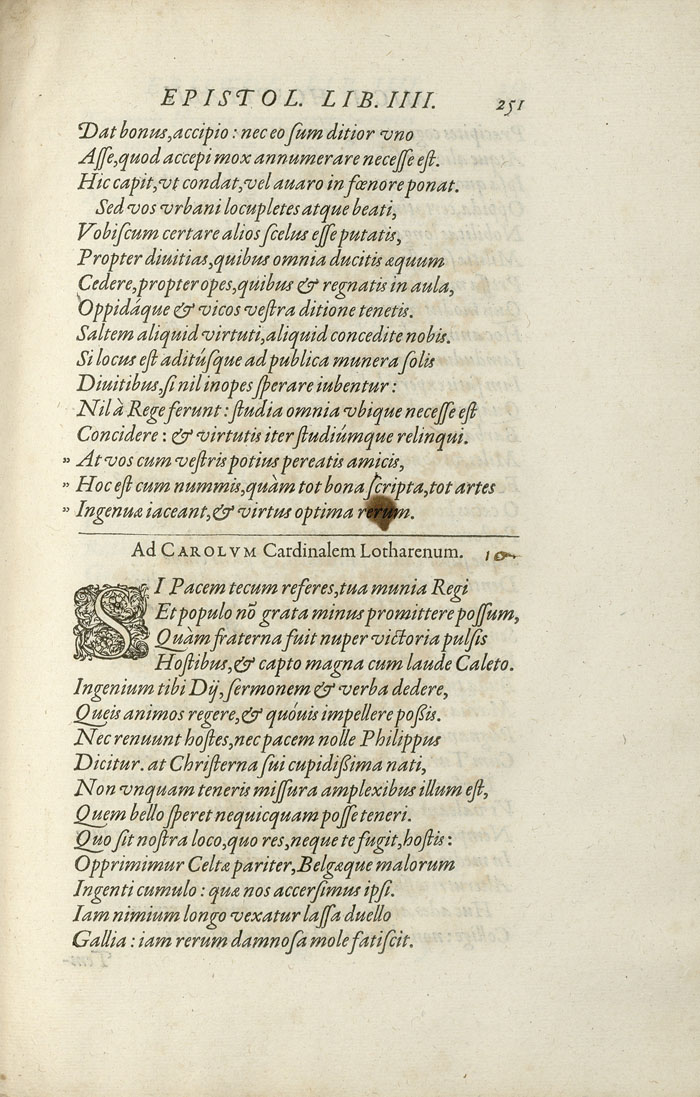 EPISTOL. LIB. IIII. 251
Dat bonus, accipio: nec eo ſum ditior vno
Aſſe, quod accepi mox annumerare neceſſe eſt.
Hic capit, vt condat, vel auaro in fœnore ponat.
Sed vos vrbani locupletes atque beati,
Vobiſcum certare alios ſcelus eſſe putatis,
Propter diuitias, quibus omnia ducitis æquum
Cedere, propter opes, quibus & regnatis in aula,
Oppidáque & vicos veſtra ditione tenetis.
Saltem aliquid virtuti, aliquid concedite nobis.
Si locus eſt aditúſque ad publica munera ſolis
Diuitibus, ſi nil inopes ſperare iubentur:
Nil à Rege ferunt: ſtudia omnia vbique neceſſe eſt
Concidere: & virtutis iter ſtudiúmque relinqui.
" At vos cum veſtris potius pereatis amicis,
" Hoc eſt cum nummis, quàm tot bona ſcripta, tot artes
" Ingenuæ iaceant, & virtus optima rerum.
Ad CAROLVM Cardinalem Lotharenum. 10
SI Pacem tecum referes, tua munia Regi
Et populo nõ grata minus promittere poſſum,
Quàm fraterna fuit nuper victoria pulſis
Hoſtibus, & capto magna cum laude Caleto.
Ingenium tibi Dij, ſermonem & verba dedere,
Queis animos regere, & quóuis impellere poßis.
Nec renuunt hoſtes, nec pacem nolle Philippus
Dicitur. at Chriſterna ſui cupidißima nati,
Non vnquam teneris miſſura amplexibus illum eſt,
Quem bello ſperet nequicquam poſſe teneri.
Quo ſit noſtra loco, quo res, neque te fugit, hoſtis:
Opprimimur Celtæ pariter, Belgæque malorum
Ingenti cumulo: quæ nos accerſimus ipſi.
Iam nimium longo vexatur laſſa duello
Gallia: iam rerum damnoſa mole fatiſcit.